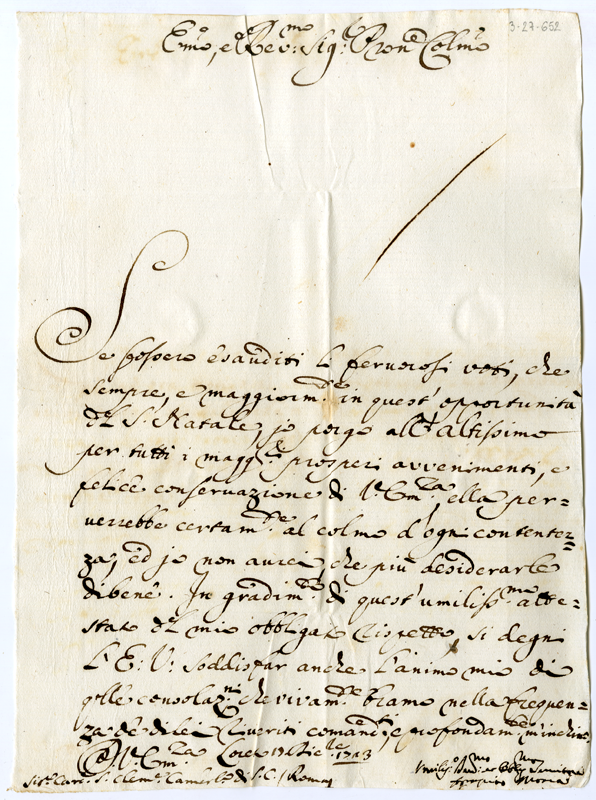 3-27-652
Emo, e Revmo: Sigr: Pron Colmo
Se fossero esauditi li fervorosi voti, che
sempre, e maggiormte in quest' opportunità
del S. Natale, jo porgo all' Altissimo
per tutti i maggri prosperi avvenimenti, e
felice conservazione di Va Emza, ella per=
verrebbe certamte al colmo d'ogni contentez=
za; ed jo non aurei, che più desiderarle
di bene. In gradimto di quest' umilissmo atte=
stato del mio obbligato rispetto, si degni
L'E: V: soddisfar anche l'animo mio di
quelle consolazni, che vivamte bramo nella frequen=
za de di lei riveriti comandi, e profondamte m'inchino
D. V. Emza
1723
Sigr Card. S. Clemte Camerlo di S. C. / Roma